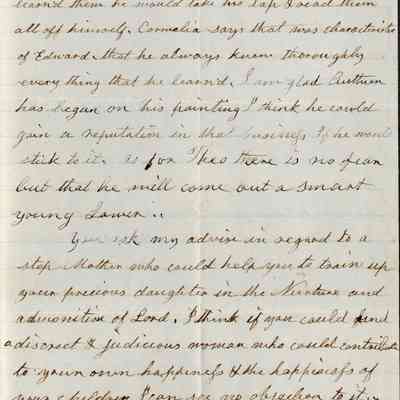 learn'd them he would take his Lap & read them
all off himself. Cornelia says that was characteristic
of Edward that he always knew thoroughly
every thing that he learn'd. I am glad Authur
has began on his painting I think he could
gain a reputation in that business if he would
stick to it. as for Theo there is no fear
but that he will come out a smart
young
You ask my advise in regard to a
step Mother who could help you to train up
your precious daughter in the Nurture and
admonition of Lord. I think if you could find
a discreet & judicious woman who could contribute
to your own happiness & the happiness of
your children I can see no objection to it